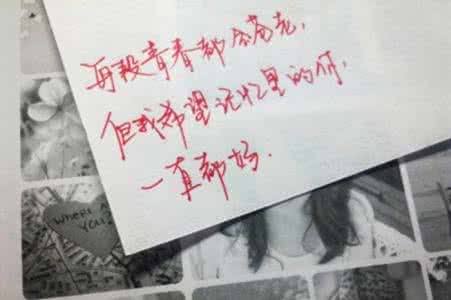 每段青春都会苍老,
但我希望记忆里的你,
一直都好.
WHERE
YOU